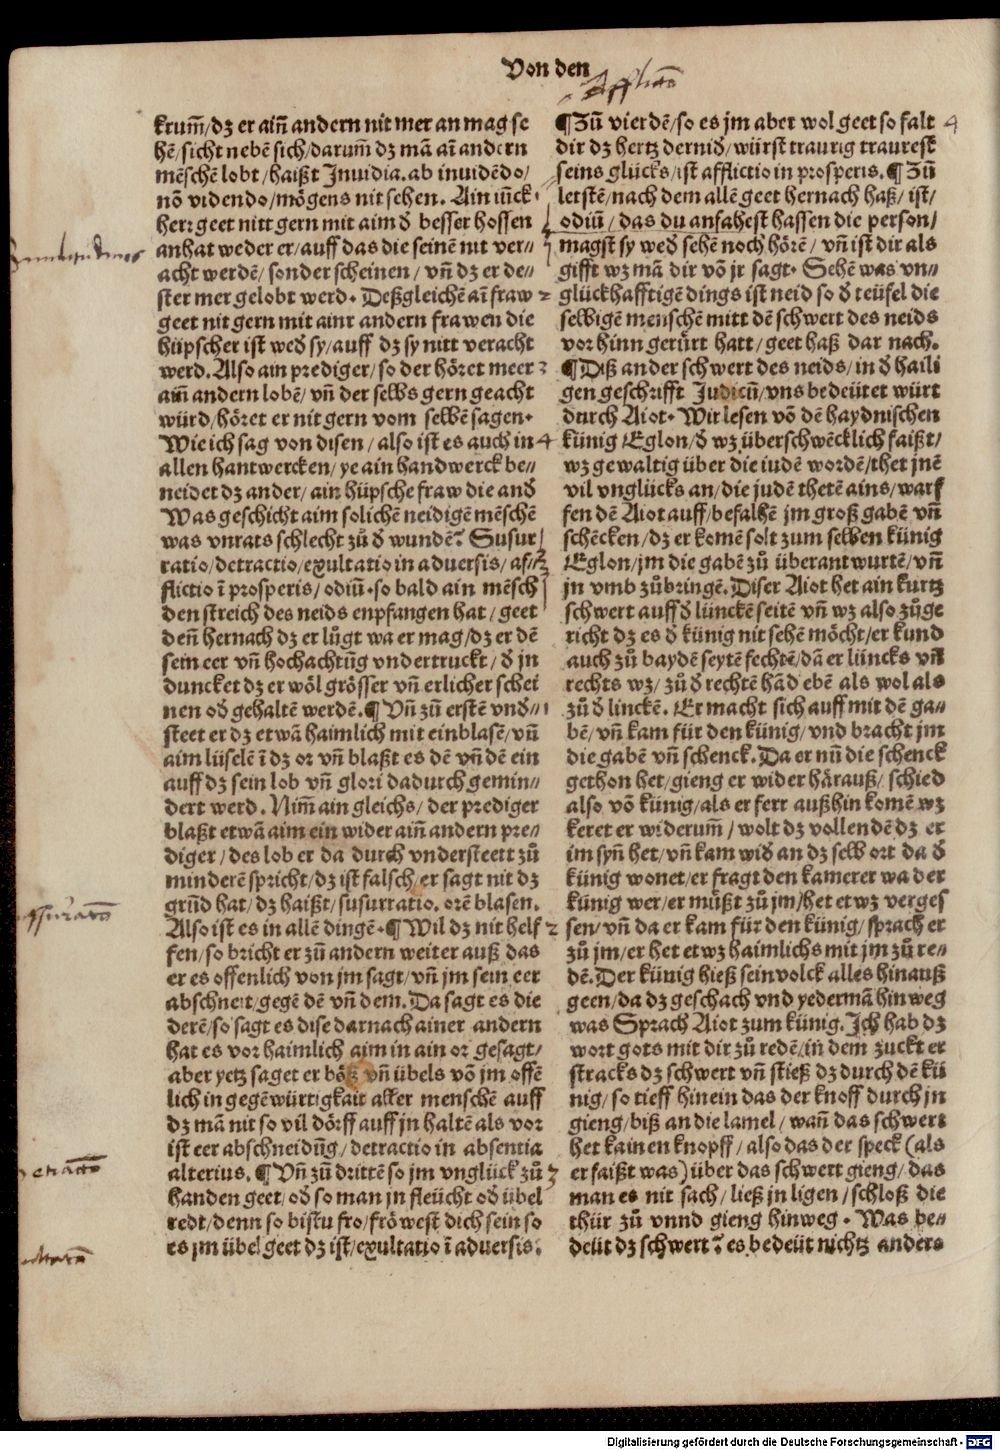 Von den
krum̃/dʒ er ain̄ andern nit mer an mag se
hē/sicht nebē sich/darum̃ dʒ mā aī andern
mēschē lobt/haißt Inuidia. ab inuidēdo/
nō videndo/mögens nit sehen. Ain iūck⸗
herr geet nitt gern mit aim ð besser hossen
anhat weder er/auff das die seinē nit ver⸗
acht werdē/sonder scheinen/vn̄ dʒ er de⸗
ster mer gelobt werd. Deßgleichē aī fraw
geet nit gern mit ainr andern frawen die
hüpscher ist weð sy/auff dʒ sy nitt veracht
werd. Also ain prediger/so der höret meer
ain̄ andern lobē/vn̄ der selbs gern geacht
würd/höret er nit gern vom selbē sagen.
Wie ich sag von disen/also ist es auch in
allen hantwercken/ye ain handwerck be⸗
neidet dʒ ander/ain hüpsche fraw die anð
Was geschicht aim solichē neidigē mēschē
was vnrats schlecht zů ð wundē? Susur
ratio/detractio/exultatio in adversis/af⸗
flictio ī prosperis/odiū. so bald ain mēsch
den streich des neids enpfangen hat/geet
den̄ hernach dʒ er lůgt wa er mag/dʒ er dē
sein eer vn̄ hochachtūg vndertruckt/ð jn
duncket dʒ er wöl grösser vn̄ erlicher schei
nen oð gehaltē werdē. ¶ Vn̄ zū erstē vnð⸗
steet er dʒ etwā haimlich mit einblasē/vn̄
aim lüselē ī dʒ or vn̄ blaßt es dē vn̄ dē ein
auff dʒ sein lob vn̄ glori dadurch gemin⸗
dert werd. Nim̄ ain gleichs/der prediger
blaßt etwā aim ein wider ain̄ andern pre⸗
diger/des lob er da durch vndersteett zů
minderē spricht/dʒ ist falsch/er sagt nit dʒ
grūd hat/dʒ haißt/susurratio. orē blasen.
Also ist es in allē dingē. ¶ Wil dʒ nit helf
fen/so bricht er zū andern weiter auß das
er es offenlich von jm sagt/vn̄ jm sein eer
abschneit/gegē dē vn̄ dem. Da sagt es die
derē/so sagt es dise darnach ainer andern
hat es vor haimlich aim in ain or gesagt/
aber yetz saget er böß vn̄ übels vō jm offē
lich in gegēwürtigkait aller menschē auff
dʒ mā nit so vil dörff auff jn haltē als vor
ist eer abschneidūg/detractio in absentia
alterius. ¶ Vn̄ zū drittē so jm vnglück zů
handen geet/oð so man jn fleücht oð übel
redt/denn so bistu fro/fröwest dich sein so
es jm übel geet dʒ ist/exultatio ī adversis.
¶ Zū vierdē/so es jm aber wol geet so falt
dir dʒ hertz dernið/würst traurig traurest
seins glücks/ist afflictio in prosperis. ¶ Zū
letstē/nach dem allē geet hernach haß/ist/
odiū/das du anfahest hassen die person/
magst sy weð sehē noch hörē/vn̄ ist dir als
gifft wʒ mā dir vō jr sagt. Sehē was vn⸗
glückhafftigē dings ist neid so ð teüfel die
selbigē menschē mitt dē schwert des neids
vorhinn gerürt hatt/geet haß dar nach.
¶ Diß ander schwert des neids/in ð haili
gen geschrifft Judicū/vns bedeütet würt
durch Aiot. Wir lesen vō dē haydnischen
künig Eglon/ð wʒ überschwēcklich faißt/
wʒ gewaltig über die iudē wordē/thet jnē
vil vnglücks an/die judē thetē ains/warf
fen dē Aiot auff/befalhē jm groß gabē vn̄
schēcken/dʒ er komē solt zum selben künig
Eglon/jm die gabē zů überantwurtē/vn̄
jn vmb zůbringē. Diser Aiot het ain kurtz
schwert auff ð lünckē seitē vn̄ wʒ also zůge
richt dʒ es ð künig nit sehē möcht/er kund
auch zů baydē seytē fechtē/dā er lüncks vn̄
rechts wʒ/zů ð rechtē hād ebē als wol als
zů ð linckē. Er macht sich auff mit dē ga⸗
bē/vn̄ kam für den künig/vnd bracht jm
die gabē vn̄ schenck. Da er nū die schenck
gethon het/gieng er wider härauß/schied
also vō künig/als er ferr außhin komē wʒ
keret er widerum̄/wolt dʒ vollendē dʒ er
im syn̄ het/vn̄ kam wið an dʒ selb ort da ð
künig wonet/er fragt den kamerer wa der
künig wer/er müßt zů jm/het etwʒ verges
sen/vn̄ da er kam für den künig/sprach er
zů jm/er het etwʒ haimlichs mit jm zů re⸗
dē. Der künig hieß sein volck alles hinauß
geen/da dʒ geschach vnd yedermā hinweg
was Sprach Aiot zum künig. Ich hab dʒ
wort gots mit dir zů redē/in dem zuckt er
stracks dʒ schwert vn̄ stieß dʒ durch dē kü
nig/so tieff hinein das der knoff durch jn
gieng/biß an die lamel/wan̄ das schwert
het kainen knopff/also das der speck (als
er faißt was) über das schwert gieng/das
man es nit sach/ließ jn ligen/schloß die
thür zů vnnd gieng hinweg. Was be⸗
deüt dʒ schwert? es bedeüt nichtz anders
Digitalisierung gefördert durch die Deutsche Forschungsgemeinschaft - DFG